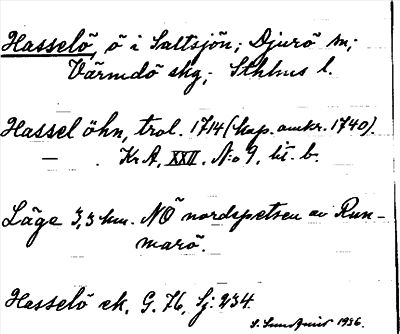 Hasselö, ö i Saltsjön; Djurö sn;
Värmdö skg; Sthlms l.
Hassel öhn, trol. 1714 (kap. omkr. 1740).
— KrA, XXII, N:o 9, lit. b.
Läge 3,3 km. NÖ nordspetsen av Run-
marö.
Hasselö ek. G. 76, Sj: 234.
1936.